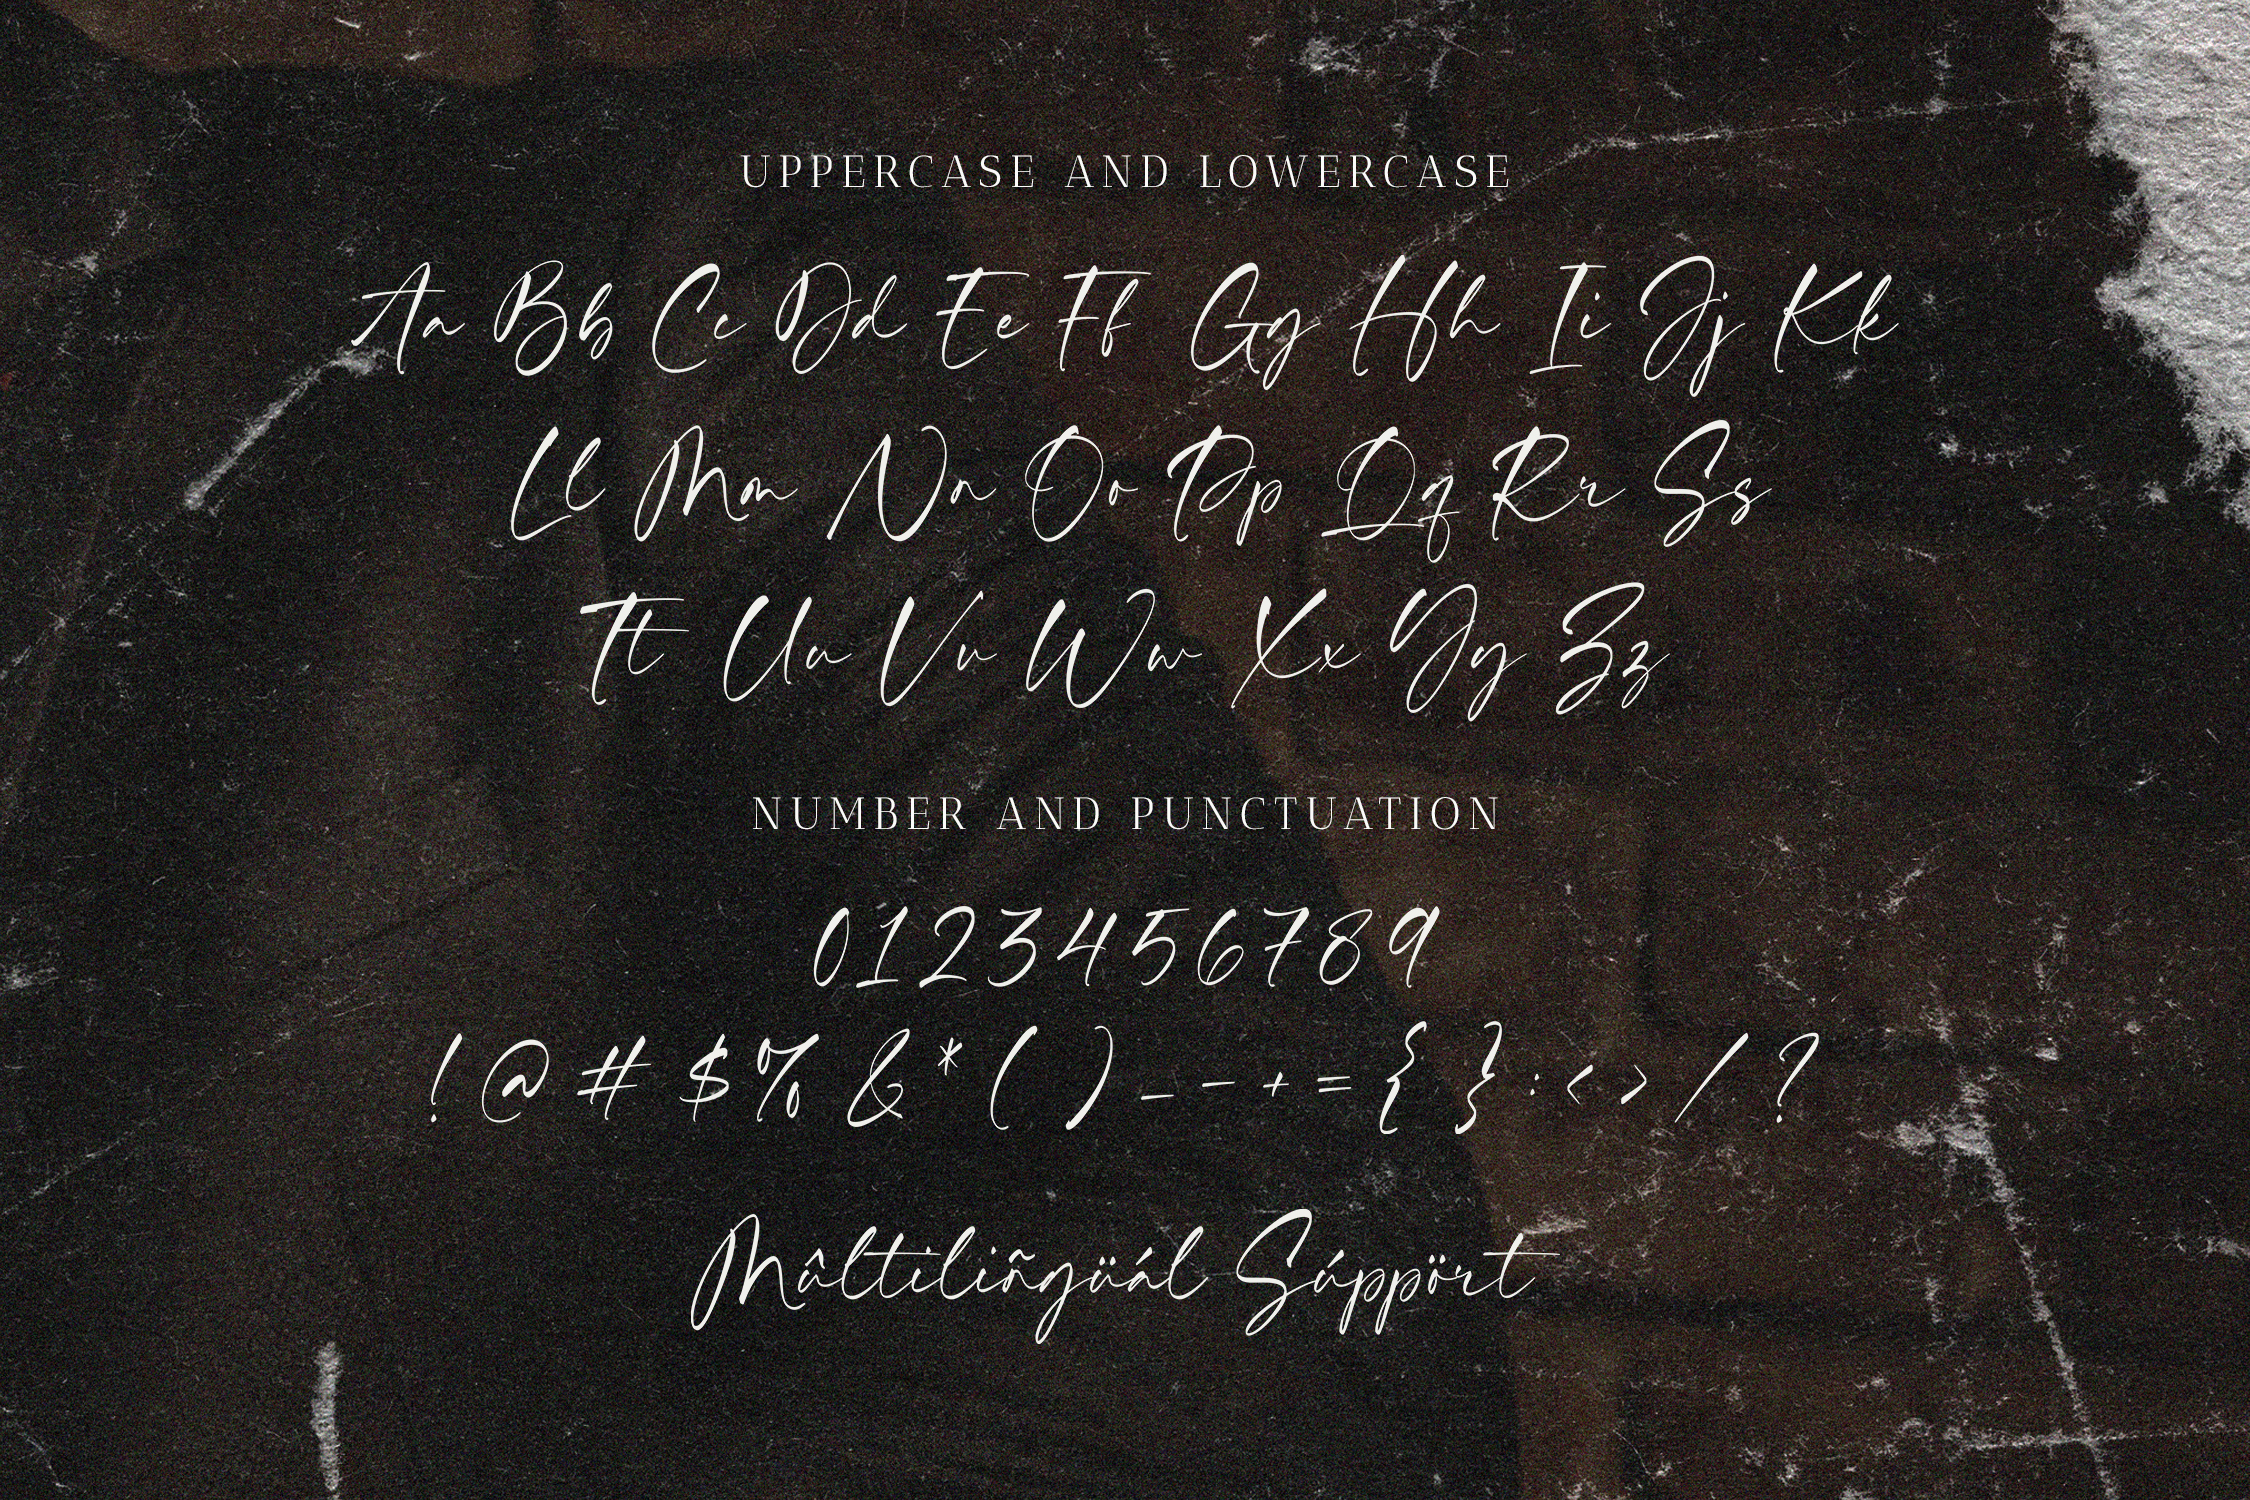 UPPERCASE AND LOWERCASE
Aa Bb Cc Dd Ee Ff Gg Hh Ii Jj Kk
Ll Mm Nn Oo Pp Qq Rr Ss
Tt Uu Vv Ww Xx Yy Zz
NUMBER AND PUNCTUATION
0123456789
! @ # $ % & * ( ) _ - + = { } : < > / ?
Mûltiliñgüál Súppört